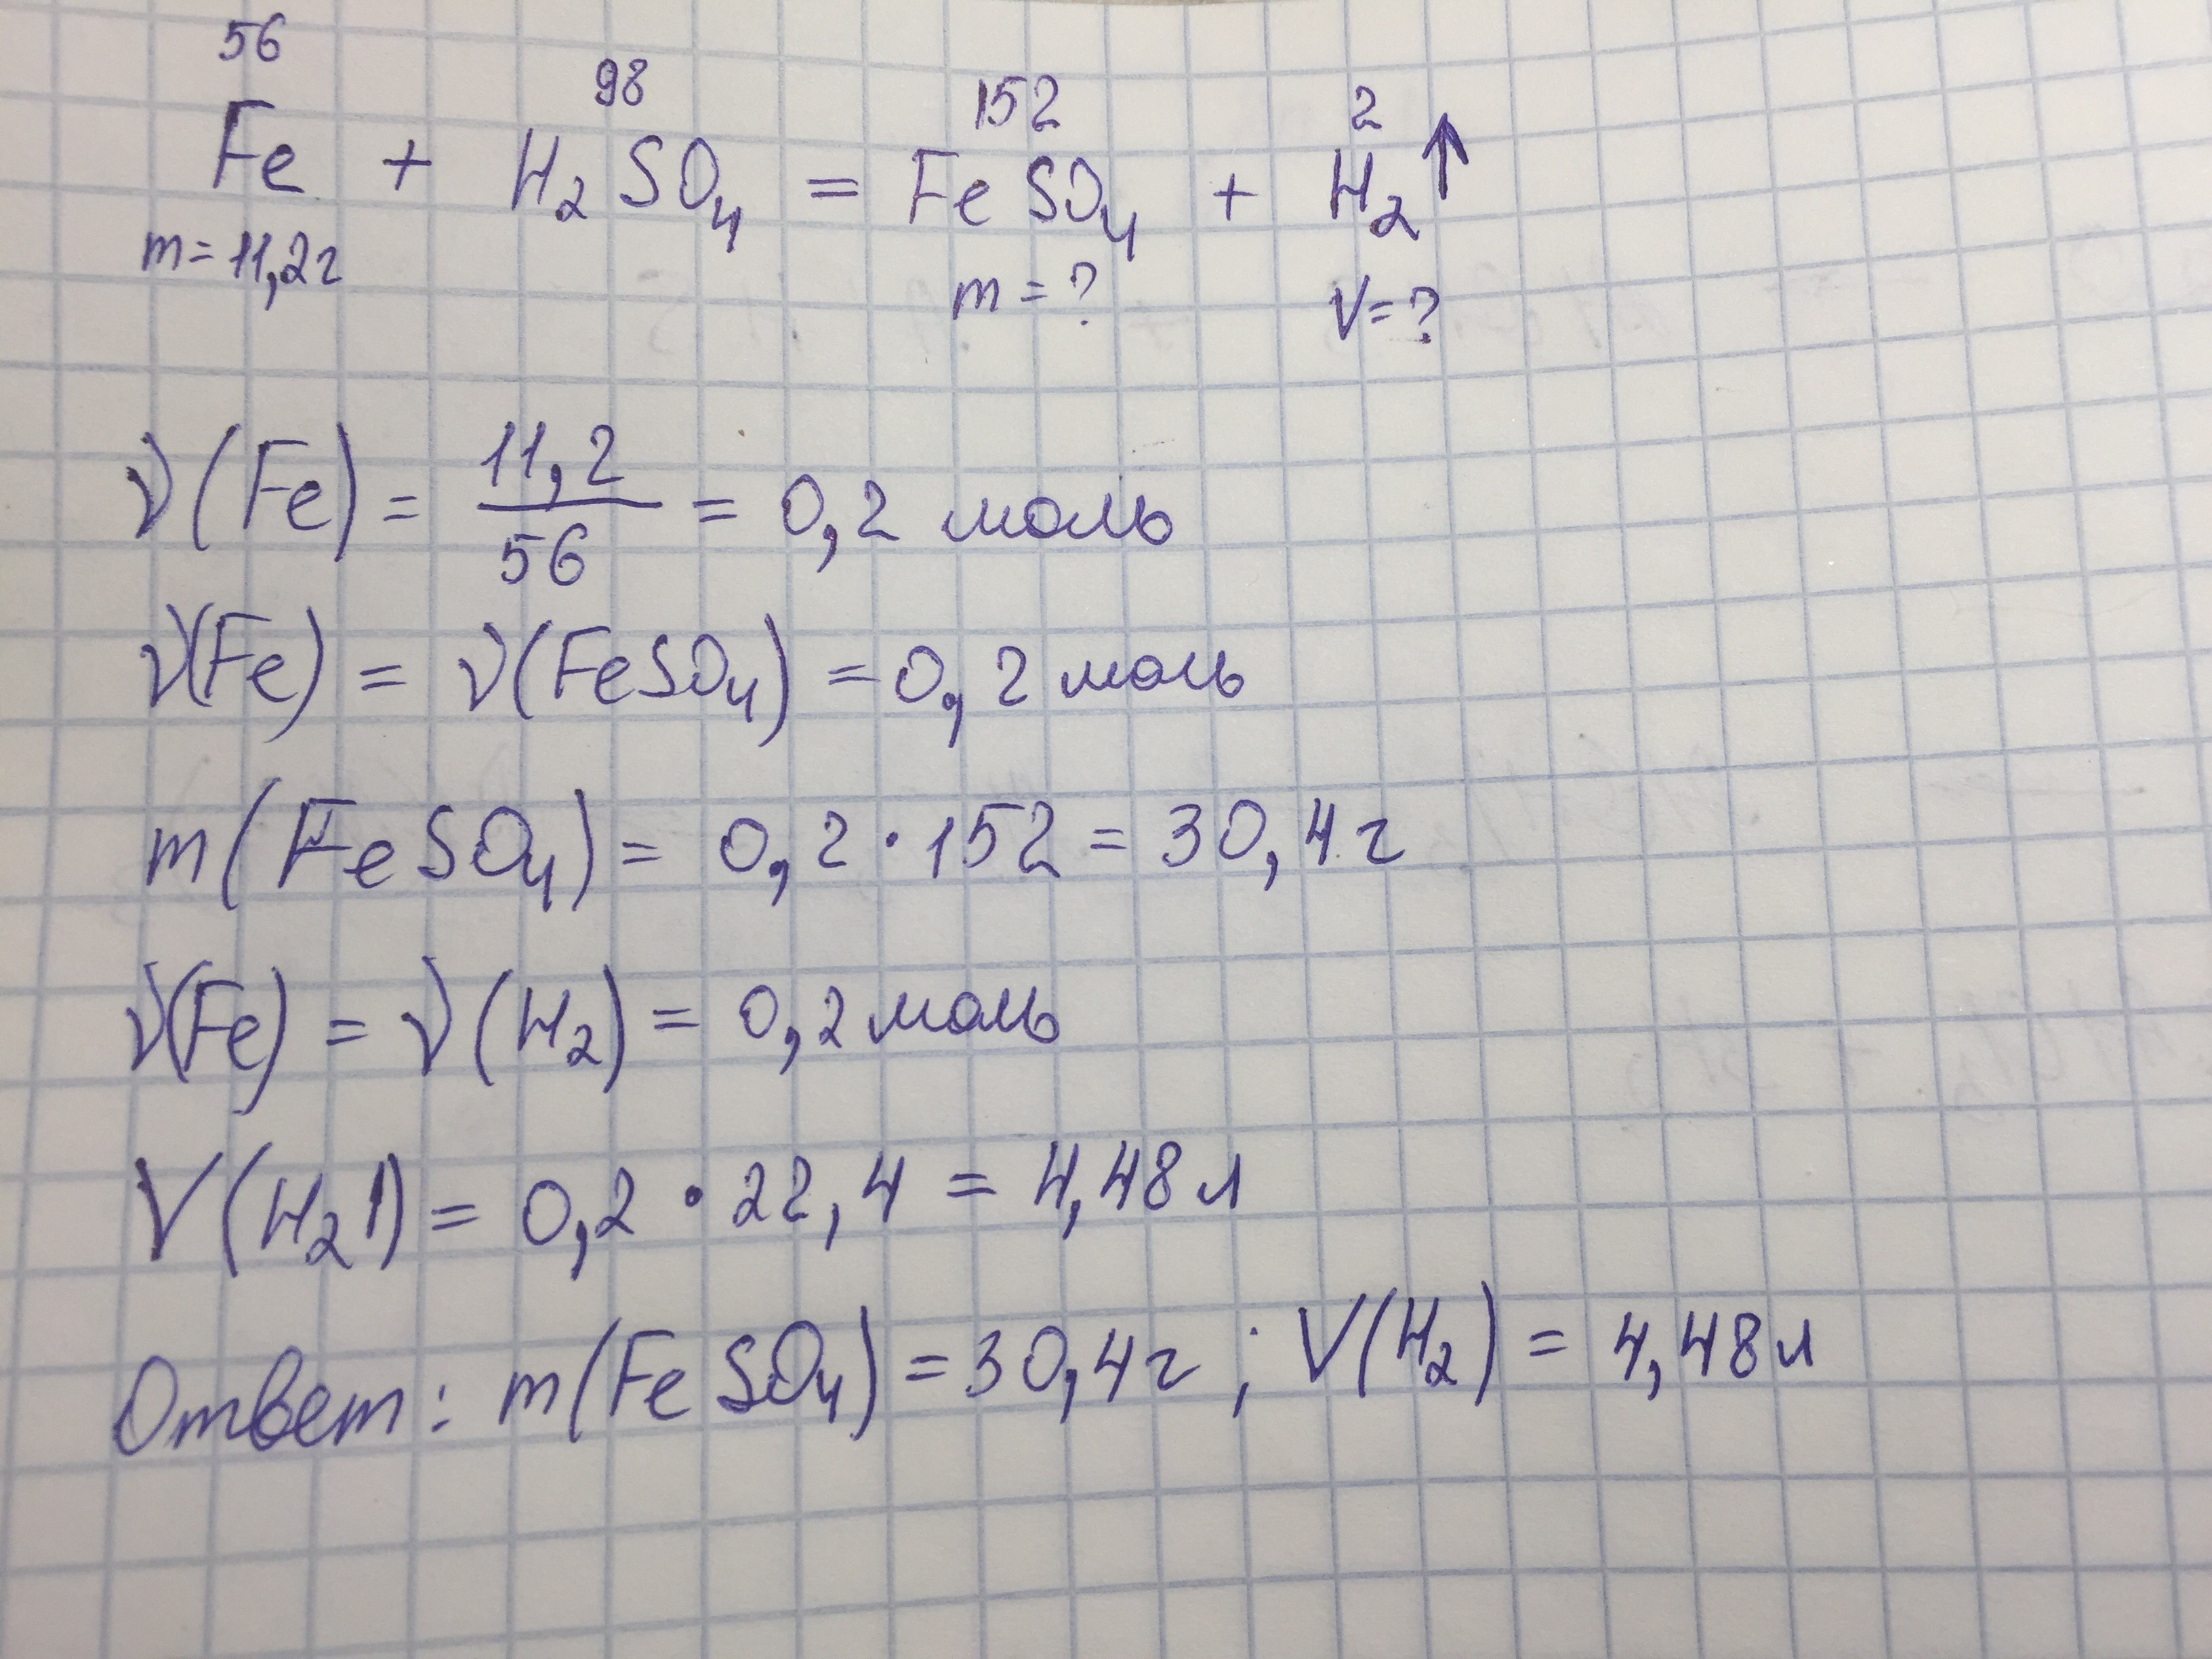 56 98 152 2
Fe + H₂SO₄ = FeSO₄ + H₂↑
m=11,2г m=? V=?
ν(Fe) = 11,2/56 = 0,2 моль
ν(Fe) = ν(FeSO₄) = 0,2 моль
m(FeSO₄) = 0,2 · 152 = 30,4 г
ν(Fe) = ν(H₂) = 0,2 моль
V(H₂) = 0,2 · 22,4 = 4,48 л
Ответ: m(FeSO₄) = 30,4 г ; V(H₂) = 4,48 л